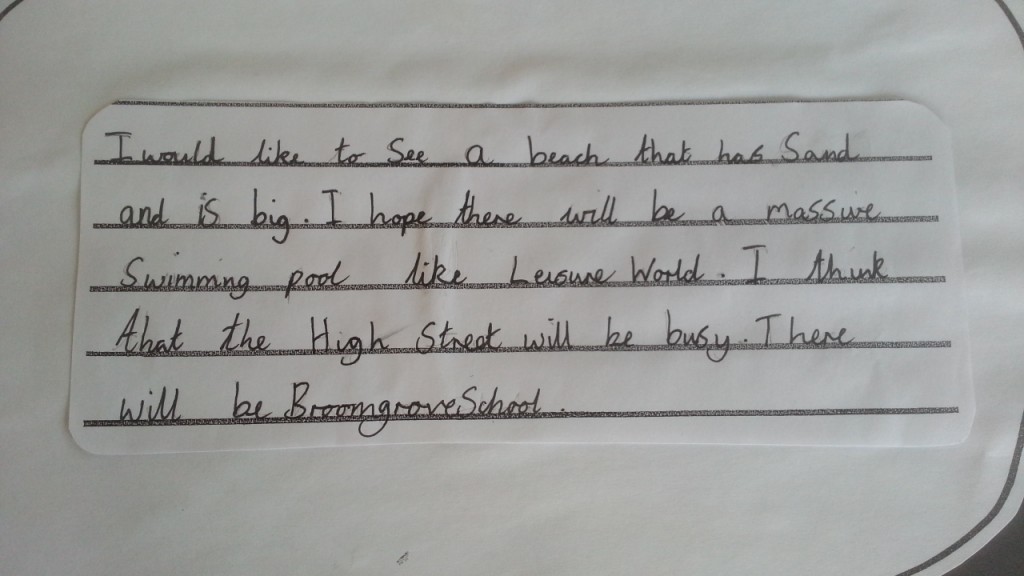 I would like to See a beach that has Sand
and is big. I hope there will be a massive
Swimming pool like Leisure World. I think
that the High Street will be busy. There
will be Broomgrove School.